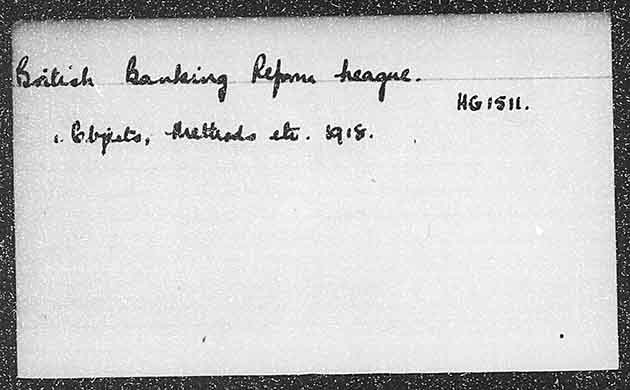 British Banking Reform League.
HG1511.
1. Objects, Methods etc. 1918.